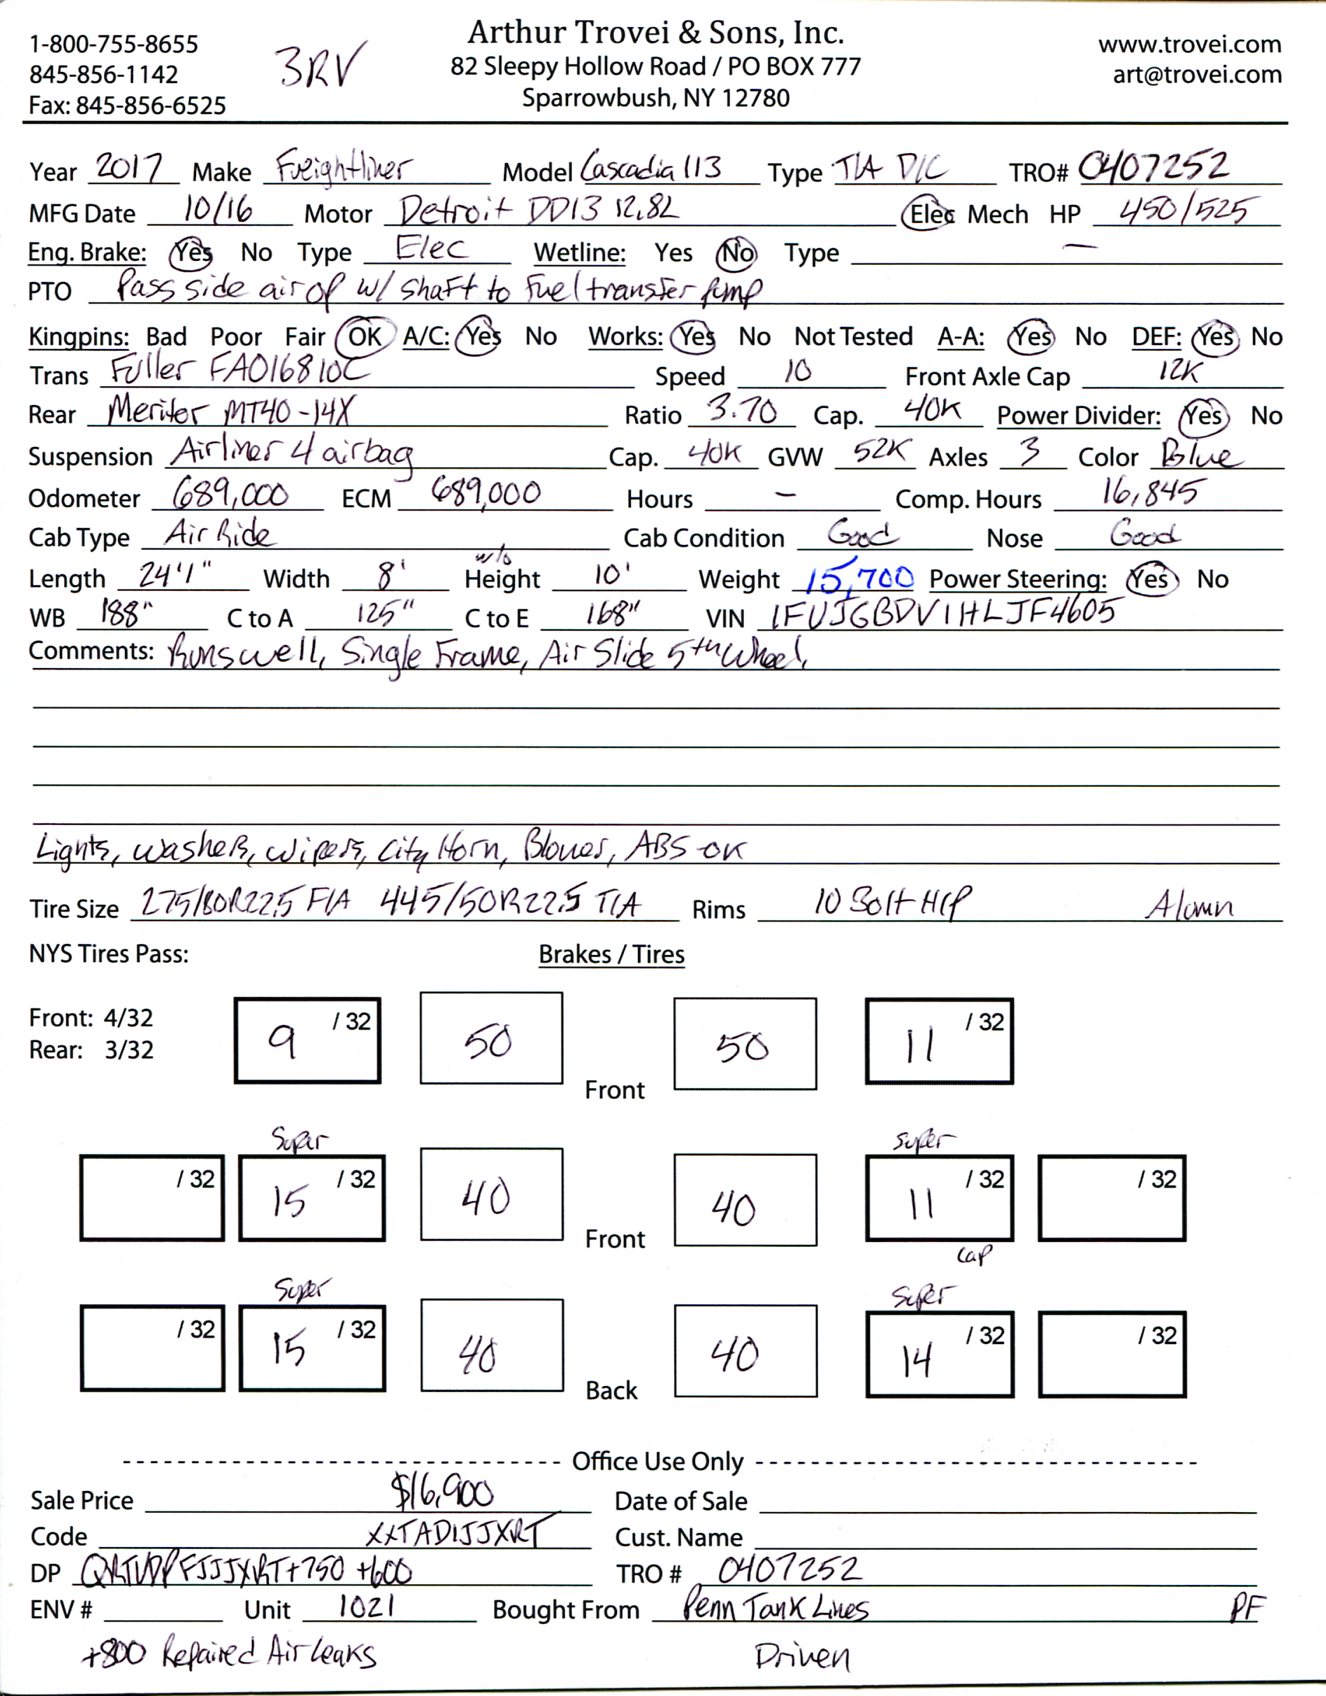 1-800-755-8655
845-856-1142
Fax: 845-856-6525
3RV
Arthur Trovei & Sons, Inc.
82 Sleepy Hollow Road / PO BOX 777
Sparrowbush, NY 12780
www.trovei.com
art@trovei.com
Year 2017 Make Freightliner Model Cascadia 113 Type T/A D/C TRO# 0407252
MFG Date 10/16 Motor Detroit DD13 12.8L Elec Mech HP 450/525
Eng. Brake: Yes No Type Elec Wetline: Yes No Type —
PTO Pass side air op w/ shaft to Fuel transfer pump
Kingpins: Bad Poor Fair OK A/C: Yes No Works: Yes No Not Tested A-A: Yes No DEF: Yes No
Trans Fuller FAO16810C Speed 10 Front Axle Cap 12K
Rear Meritor MT40-14X Ratio 3.70 Cap. 40K Power Divider: Yes No
Suspension Airliner 4 airbag Cap. 40K GVW 52K Axles 3 Color Blue
Odometer 689,000 ECM 689,000 Hours — Comp. Hours 16,845
Cab Type Air Ride Cab Condition Good Nose Good
Length 24'1" Width 8' w/o Height 10' Weight 15,700 Power Steering: Yes No
WB 188" C to A 125" C to E 168" VIN 1FUJGBDV1HLJF4605
Comments: Runs well, Single Frame, Air Slide 5th Wheel,
Lights, washers, wipers, City Horn, Blower, ABS-OK
Tire Size 275/80R22.5 F/A 445/50R22.5 T/A Rims 10 Bolt HCP Alumn
NYS Tires Pass: Brakes / Tires
Front: 4/32
Rear: 3/32
9 /32 50 Front 50 11 /32
Super Super
/32 15 /32 40 Front 40 11 /32 /32
Cap
Super Super
/32 15 /32 40 Back 40 14 /32 /32
Office Use Only
Sale Price $16,900 Date of Sale
Code XXTADIJJXRT Cust. Name
DP +750 +600 TRO # 0407252
ENV # Unit 1021 Bought From Penn Tank Lines PF
+800 Repaired Air Leaks Driven